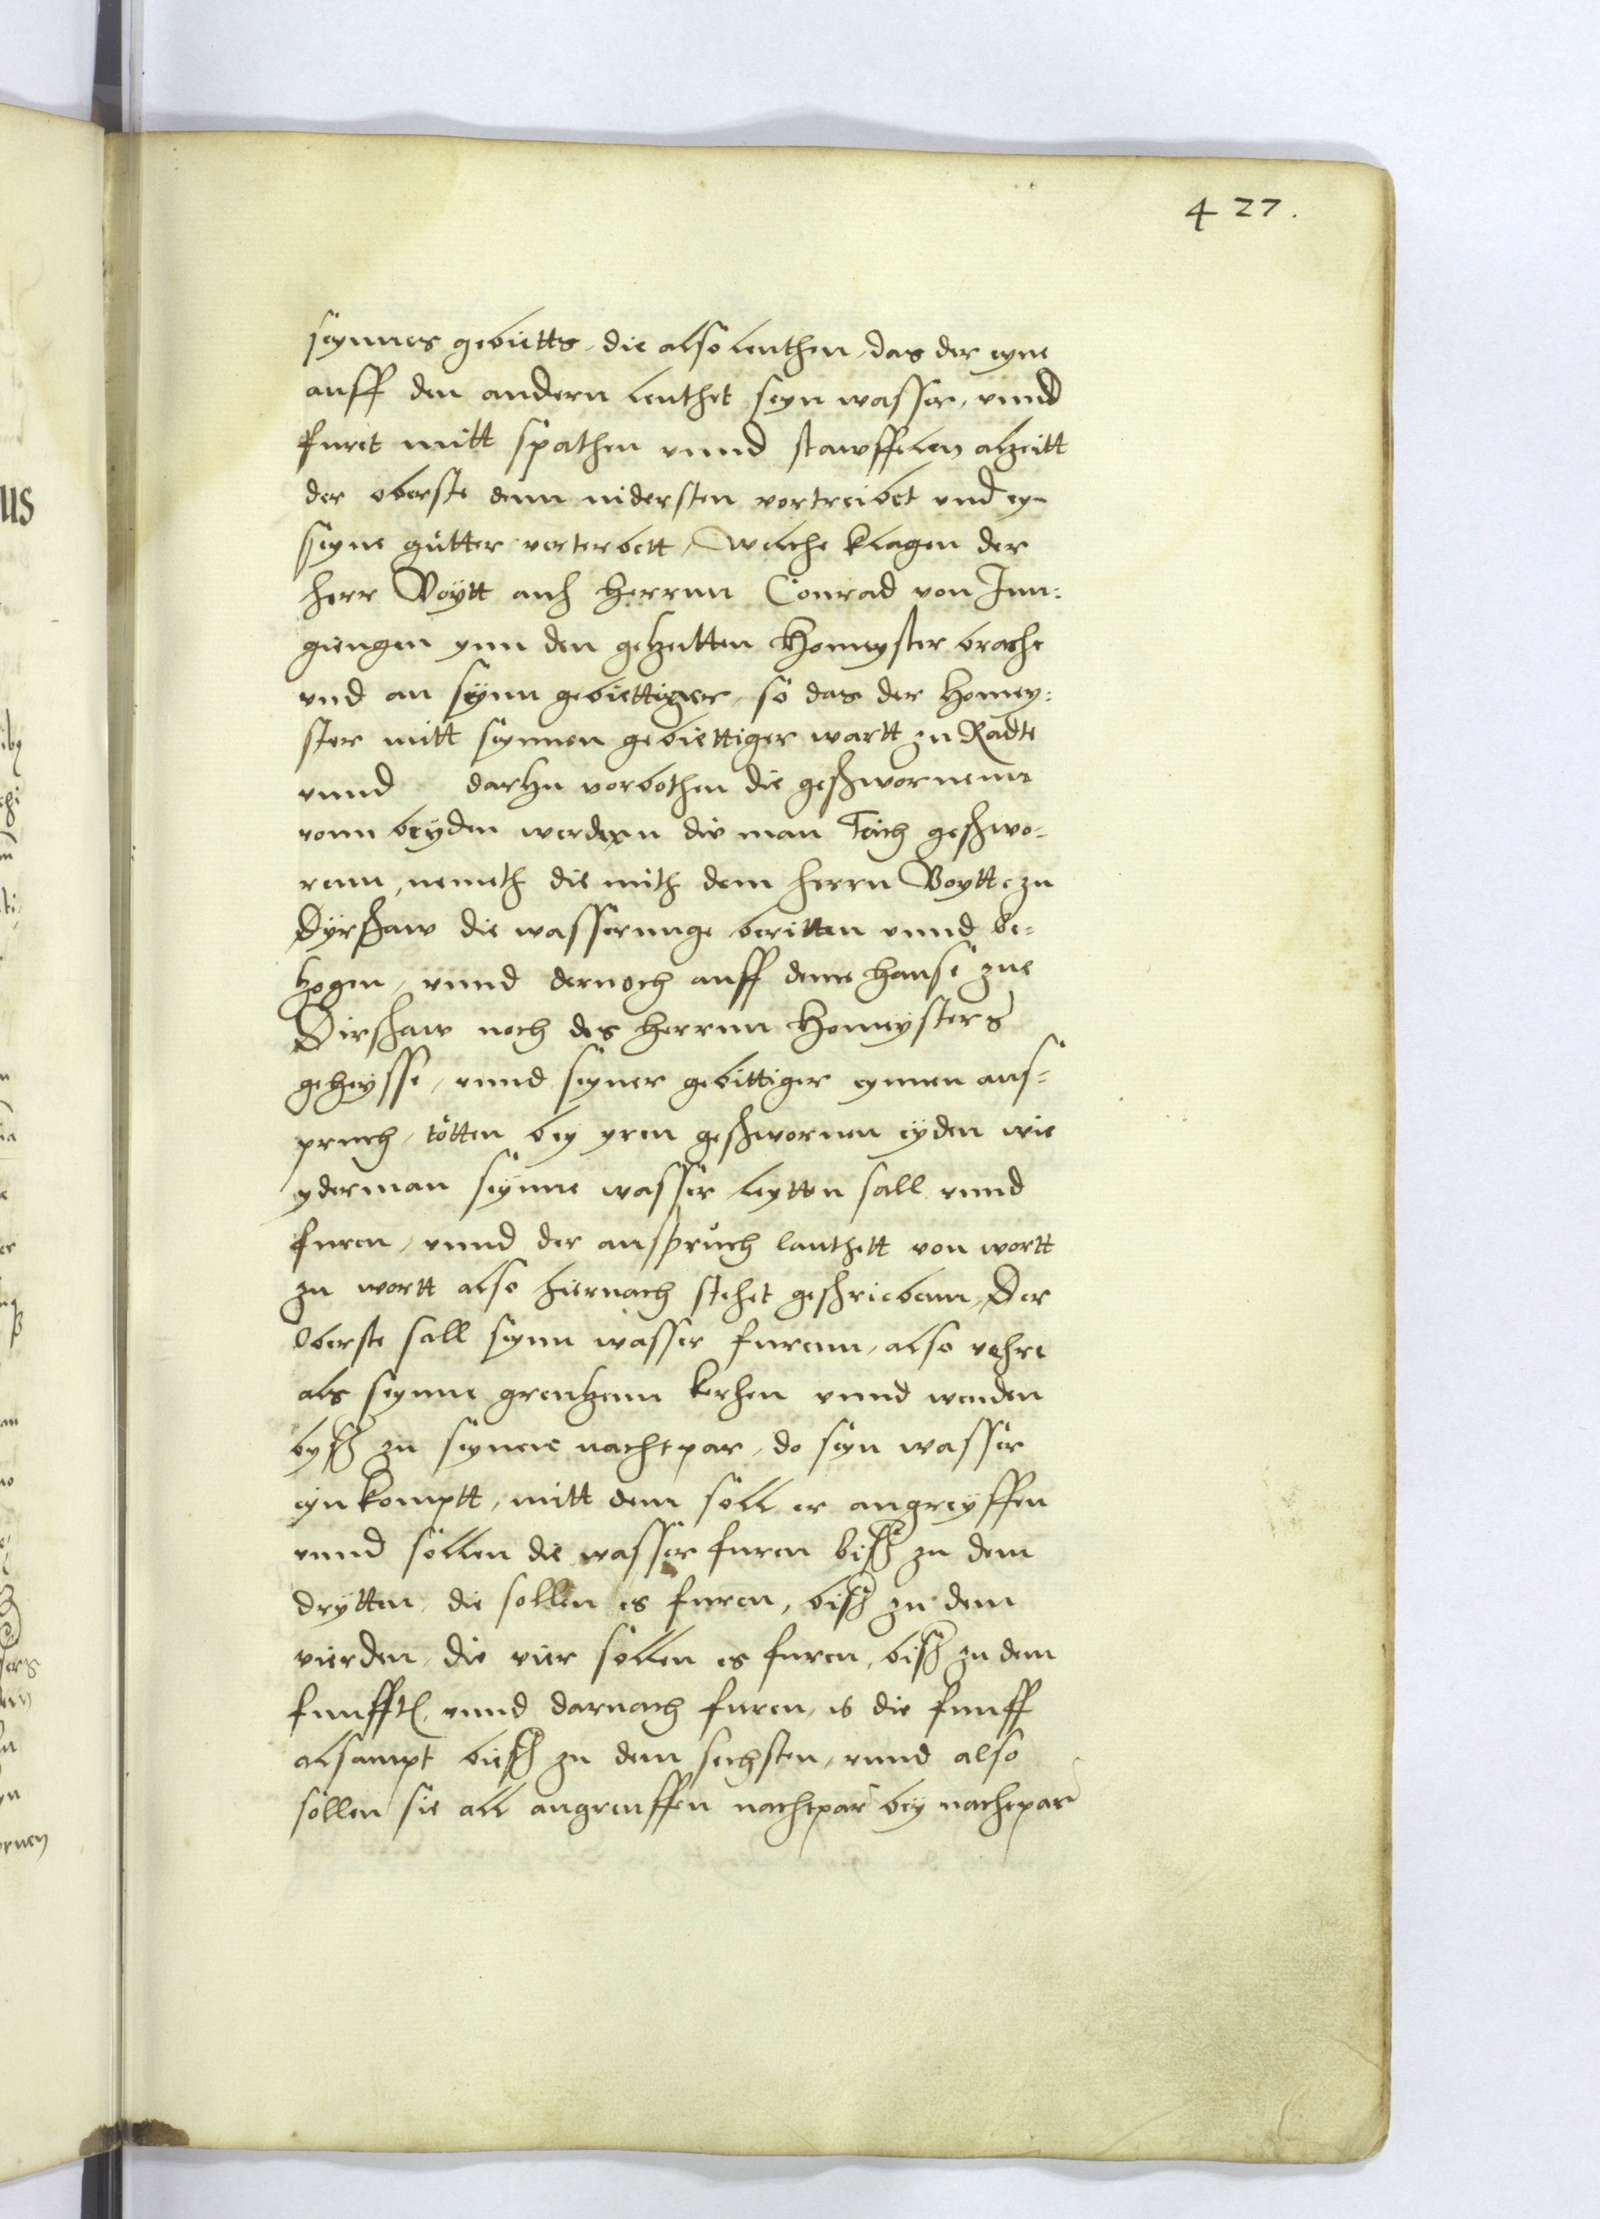 427.
seynnes gebietts, die also lenthen, das der eyne
auff den andern lenthet seyn wasser, unnd
furet mitt spathen unnd schawffelen alzeitt
der oberste denn nidersten vortreibet und eyn
seyne gütter verterbett, Welche klagen der
herr Voytt anh herrnn Conrad von Jun-
giengen ynn den getzeitten Homeyster brachte
und an seynn gebiettiger, so das der Homey-
ster mitt seynnen gebiettiger wartt zu Radte
unnd dartzu vorbothen die geschwornenn
vonn beyden werdern die man Teich geschwo-
renn, nemeth die mith dem herrn Voytte zu
Dyrschaw die wasserunge beritten unnd be-
tzogen, unnd dernoch auff deme hause zue
Dirschaw noch des herrnn Homeysters
geheysse, unnd seyner gebittiger eynnen aus-
pruch, tötten bey yren geschwornen eyden wie
yderman seynne wasser leytten sall unnd
furen, unnd der ausspruch lauthett von wortt
zu wortt also hiernach stehet geschriebenn, Der
Oberste sall seynn wasser furenn, also vehre
als seynne grentzenn kerhen unnd wenden
bysz zu seyneme nachtpar, do seyn wasser
eyn komptt, mitt dem soll er angreyffen
unnd sollen die wasser furen bisz zu dem
drytten, die sollen es furen, bisz zu dem
vierden, die vier sollen es furen, bisz zu dem
funfften, unnd darnach furen, is die funff
alsampt biesz zu dem sechsten, unnd also
sollen sie all angreuffen nachtpar bey nachtpar